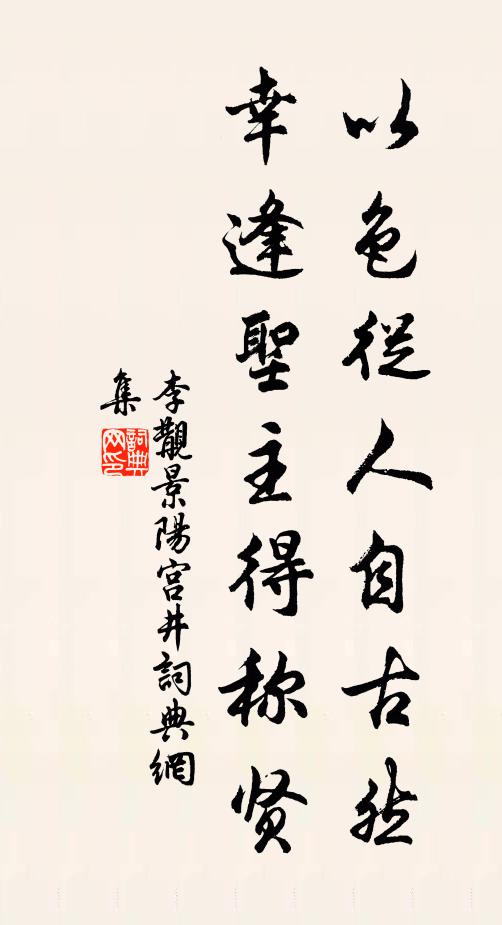 以色從人自古然
幸逢聖主得称贤
李覯景陽宮井詞典網
集
詞典網印